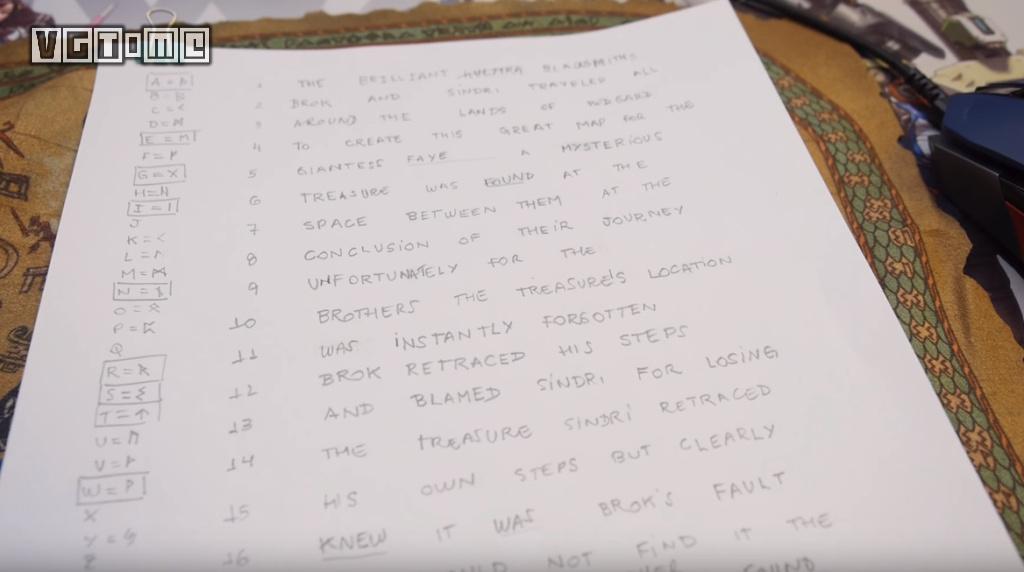 VGTIME
A = ᚨ
B = ᛒ
C = ᚲ
D = ᛗ
E = M
F = ᚠ
G = X
H = H
I = I
J
K = <
L = ᛚ
M = ᛗ
N = ᚾ
O = ᛟ
P = ᛈ
Q
R = R
S = Σ
T = ↑
U = ᚢ
V = ᚹ
W = P
X
Y =
Z
1 THE BRILLIANT HULDRA BLACKSMITHS
2 BROK AND SINDRI TRAVELED ALL
3 AROUND THE LANDS OF MIDGARD
4 TO CREATE THIS GREAT MAP FOR THE
5 GIANTESS FAYE A MYSTERIOUS
6 TREASURE WAS FOUND AT THE
7 SPACE BETWEEN THEM AT THE
8 CONCLUSION OF THEIR JOURNEY
9 UNFORTUNATELY FOR THE
10 BROTHERS THE TREASURE'S LOCATION
11 WAS INSTANTLY FORGOTTEN
12 BROK RETRACED HIS STEPS
13 AND BLAMED SINDRI FOR LOSING
14 THE TREASURE SINDRI RETRACED
15 HIS OWN STEPS BUT CLEARLY
16 KNEW IT WAS BROK'S FAULT
NOT FIND IT THE
FOUND